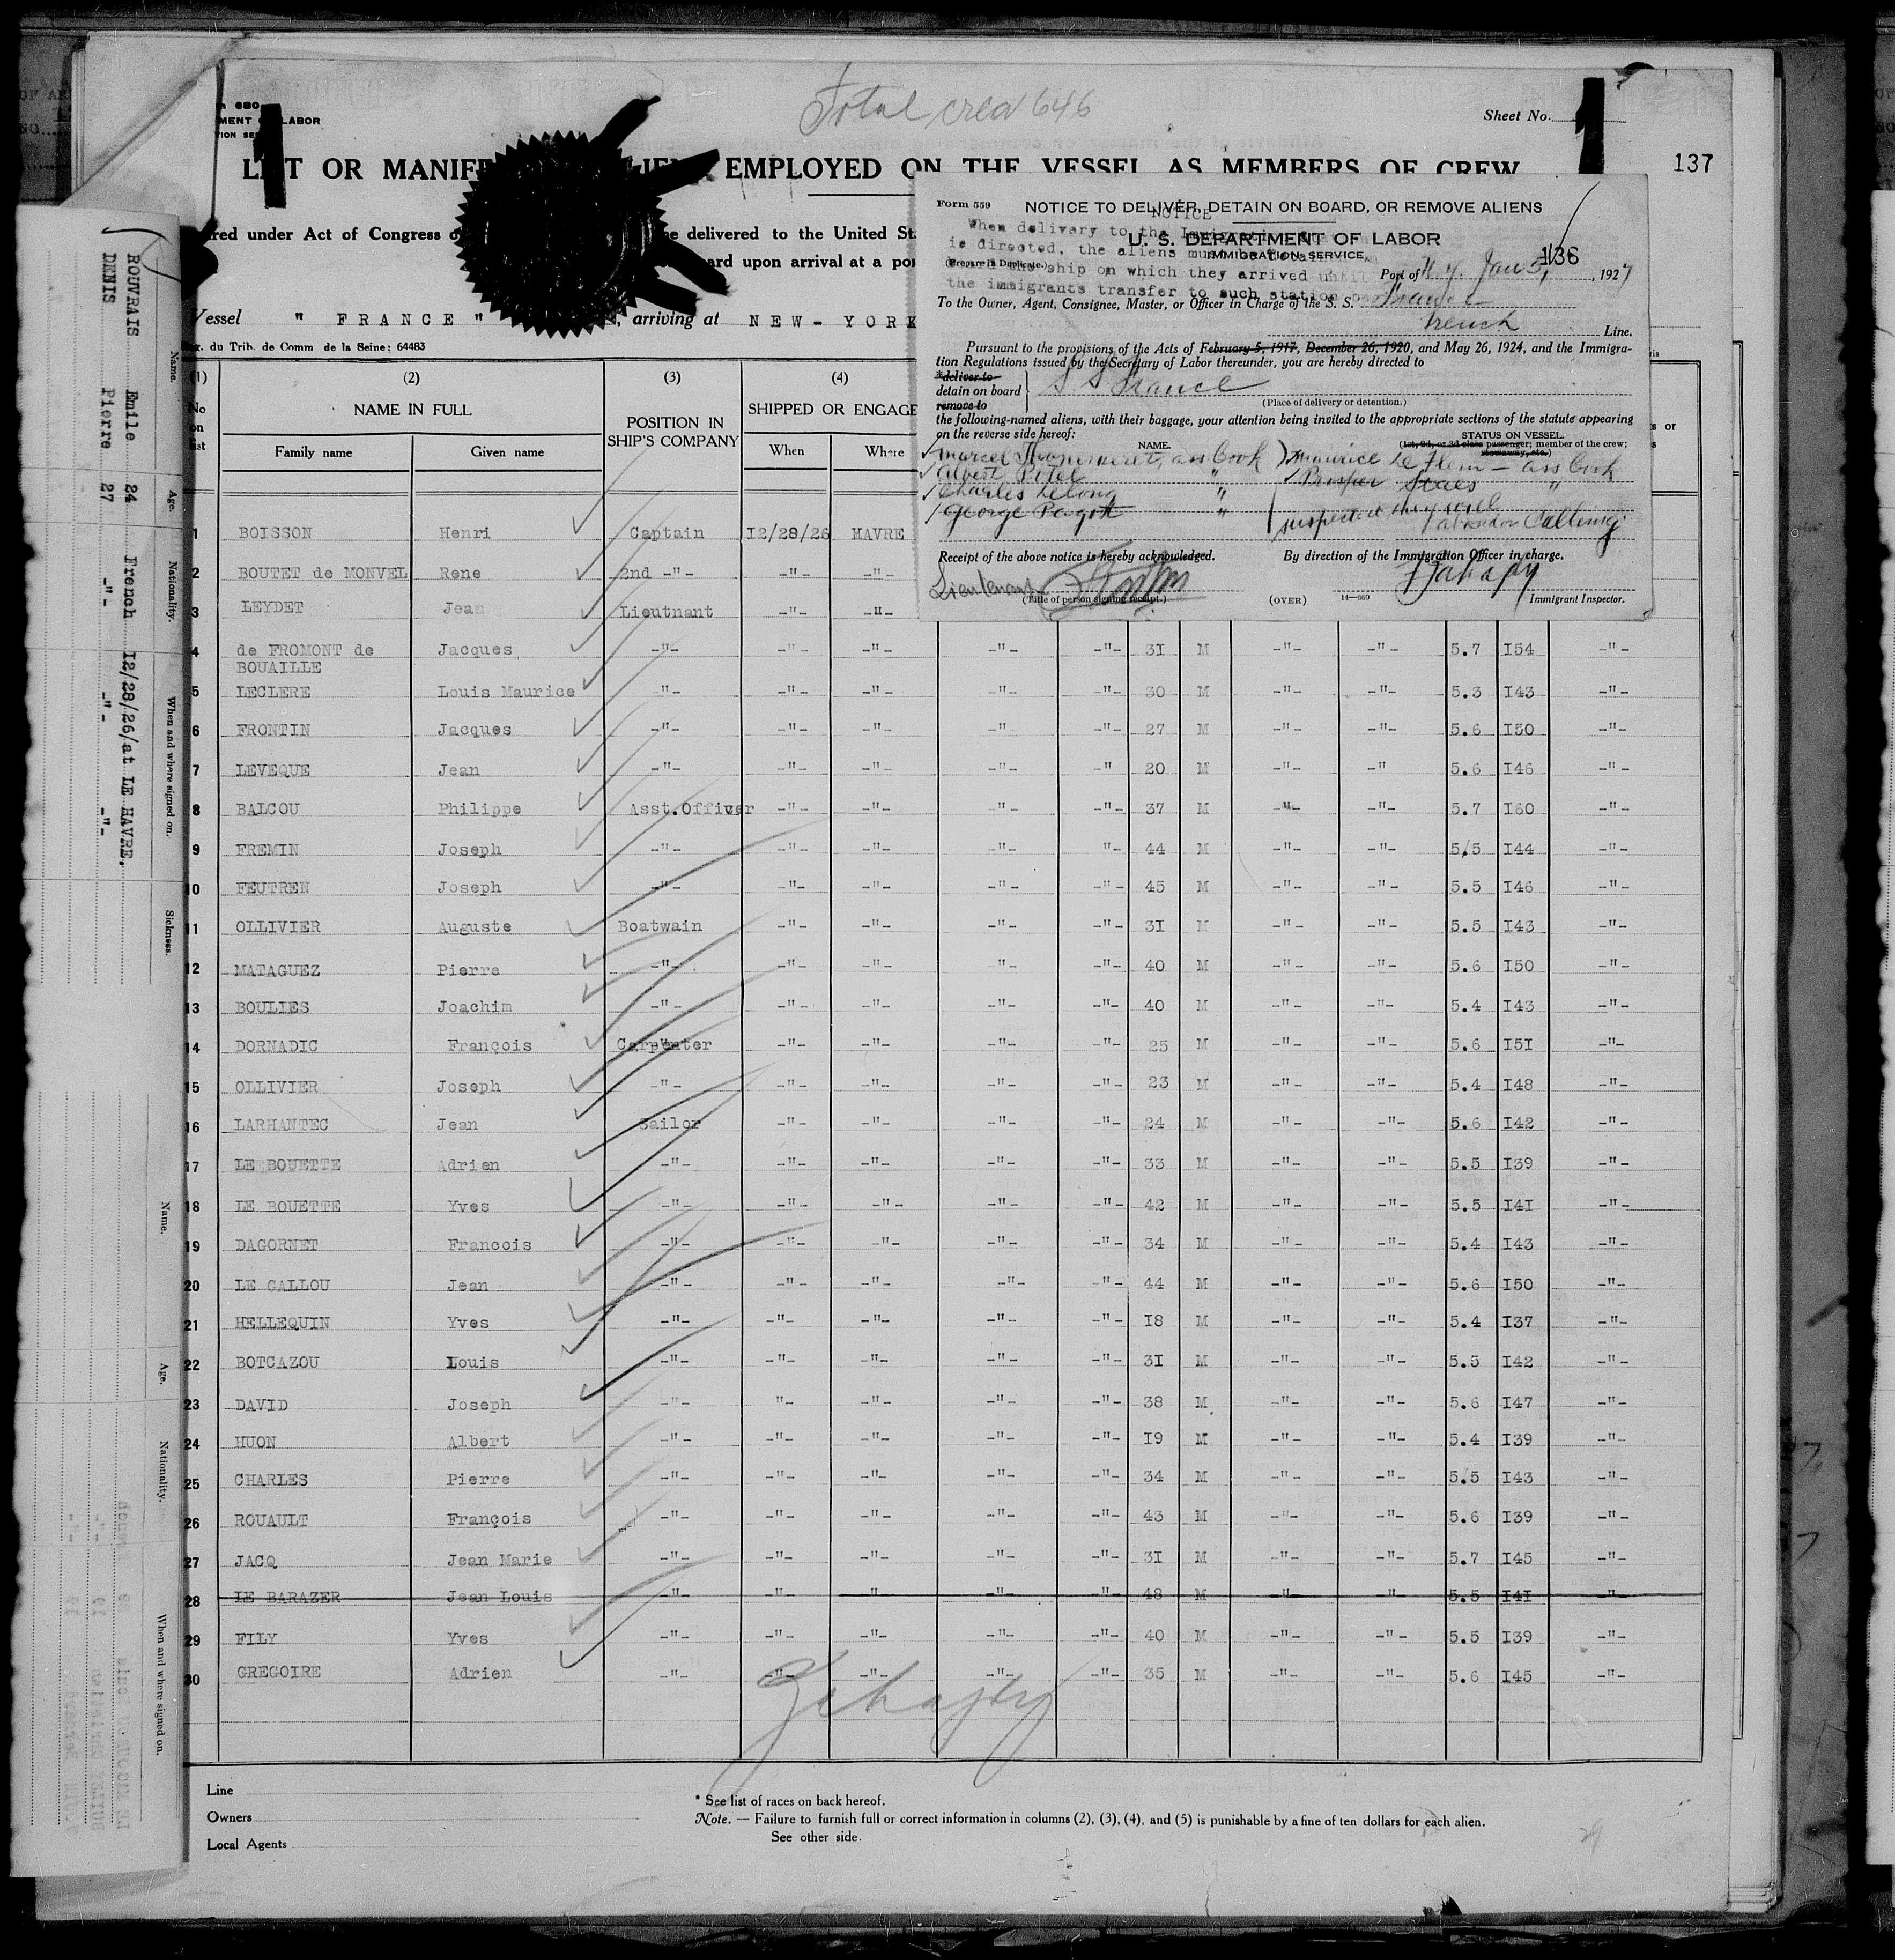 Total crew 646
Sheet No. 1
680
MENT OF LABOR
TION SE
LIST OR MANIFE LIEN EMPLOYED ON THE VESSEL AS MEMBERS OF CREW
137
red under Act of Congress o be delivered to the United St
ard upon arrival at a por
Vessel " FRANCE " , arriving at NEW-YORK
Reg. du Trib. de Comm de la Seine: 64483
Form 559
NOTICE TO DELIVER, DETAIN ON BOARD, OR REMOVE ALIENS
NOTICE
When delivery to the Immigration
U. S. DEPARTMENT OF LABOR
is directed, the aliens must
IMMIGRATION SERVICE
136
(Prepare in Duplicate.)
the ship on which they arrived until
Port of N.Y. Jan 5, 1927
the immigrants transfer to such station
To the Owner, Agent, Consignee, Master, or Officer in Charge of the S. S. France
French Line.
Pursuant to the provisions of the Acts of February 5, 1917, December 26, 1920, and May 26, 1924, and the Immigra-
tion Regulations issued by the Secretary of Labor thereunder, you are hereby directed to
*deliver to
detain on board S S France
remove to
(Place of delivery or detention.)
the following-named aliens, with their baggage, your attention being invited to the appropriate sections of the statute appearing
on the reverse side hereof:
NAME. STATUS ON VESSEL.
(1st, 2d, or 3d class passenger; member of the crew;
stowaway, etc.)
Marcel Thommeret, ass Cook Maurice Le Flem - ass Cook
Albert Potel " Prosper Staes "
Charles Lelong "
George Pagot " suspected they will
abandon Calling
Receipt of the above notice is hereby acknowledged. By direction of the Immigration Officer in charge.
Lieutenant
(Title of person signing receipt.) (OVER) 14—560 Immigrant Inspector.
(1) (2) (3) (4)
No on list NAME IN FULL POSITION IN SHIP'S COMPANY SHIPPED OR ENGAGE
Family name Given name When Where
1 BOISSON Henri Captain I2/28/26 HAVRE
2 BOUTET de MONVEL Rene 2nd -"- -"- -"-
3 LEYDET Jean Lieutnant -"- -"-
4 de FROMONT de Jacques -"- -"- -"- -"- -"- 3I M -"- -"- 5.7 I54 -"-
BOUAILLE
5 LECLERE Louis Maurice -"- -"- -"- -"- -"- 30 M -"- -"- 5.3 I43 -"-
6 FRONTIN Jacques -"- -"- -"- -"- -"- 27 M -"- -"- 5.6 I50 -"-
7 LEVEQUE Jean -"- -"- -"- -"- -" 20 M -"- -" 5.6 I46 -"-
8 BALCOU Philippe Asst.Officer -"- -"- -"- -"- 37 M -"- -"- 5.7 I60 -"-
9 FREMIN Joseph -"- -"- -"- -"- "- 44 M -"- -"- 5.5 I44 -"-
10 FEUTREN Joseph -"- -"- -"- -"- -"- 45 M -"- -"- 5.5 I46 -"-
11 OLLIVIER Auguste Boatwain -"- -"- -"- -"- 3I M -"- -"- 5.5 I43 -"-
12 MATAGUEZ Pierre -"- -"- -"- -"- -"- 40 M -"- -"- 5.6 I50 -"-
13 BOULIES Joachim -"- -"- -"- -"- -"- 40 M -"- -"- 5.4 I43 -"-
14 DORNADIC François Carpenter -"- -"- -"- -"- 25 M -"- -"- 5.6 I5I -"-
15 OLLIVIER Joseph -"- -"- -"- -"- -"- 23 M -"- -"- 5.4 I48 -"-
16 LARHANTEC Jean Sailor -"- -"- -"- -"- 24 M -"- -"- 5.6 I42 -"-
17 LE BOUETTE Adrien -"- -"- -"- -"- -"- 33 M -"- -"- 5.5 I39 -"-
18 LE BOUETTE Yves -"- -"- -"- -"- -"- 42 M -"- -"- 5.5 I4I -"-
19 DAGORNET Francois -"- -"- -"- -"- -"- 34 M -"- -"- 5.4 I43 -"-
20 LE GALLOU Jean -"- -"- -"- -"- -"- 44 M -"- -"- 5.6 I50 -"-
21 HELLEQUIN Yves -"- -"- -"- -"- -"- I8 M -"- -"- 5.4 I37 -"-
22 BOTCAZOU Louis -"- -"- -"- -"- -"- 3I M -"- -"- 5.5 I42 -"-
23 DAVID Joseph -"- "- -"- -"- -"- 38 M -"- -"- 5.6 I47 -"-
24 HUON Albert -"- -"- -"- -"- -"- I9 M -"- -"- 5.4 I39 -"-
25 CHARLES Pierre -"- -"- -"- -"- -"- 34 M -"- -"- 5.5 I43 -"-
26 ROUAULT François -"- -"- -"- -"- -"- 43 M -"- -"- 5.6 I39 -"-
27 JACQ Jean Marie -"- -"- -"- -"- -"- 3I M -"- -"- 5.7 I45 -"-
28 LE BARAZER Jean Louis -"- -"- " -"- -"- 48 M -"- -"- 5.5 I4I -"-
29 FILY Yves -"- -"- -"- -"- -"- 40 M -"- -"- 5.5 I39 -"-
30 GREGOIRE Adrien -"- -"- -"- -"- -"- 35 M -"- -"- 5.6 I45 -"-
Line
Owners
Local Agents
* See list of races on back hereof.
Note. — Failure to furnish full or correct information in columns (2), (3), (4), and (5) is punishable by a fine of ten dollars for each alien.
See other side.
Name. Age. Nationality. When and where signed on. Sickness.
ROUVRAIS Emile 24 French I2/28/26/at LE HAVRE.
DENIS Pierre 27 -"- -"- -"-
Name. Age. Nationality. When and where signed on.